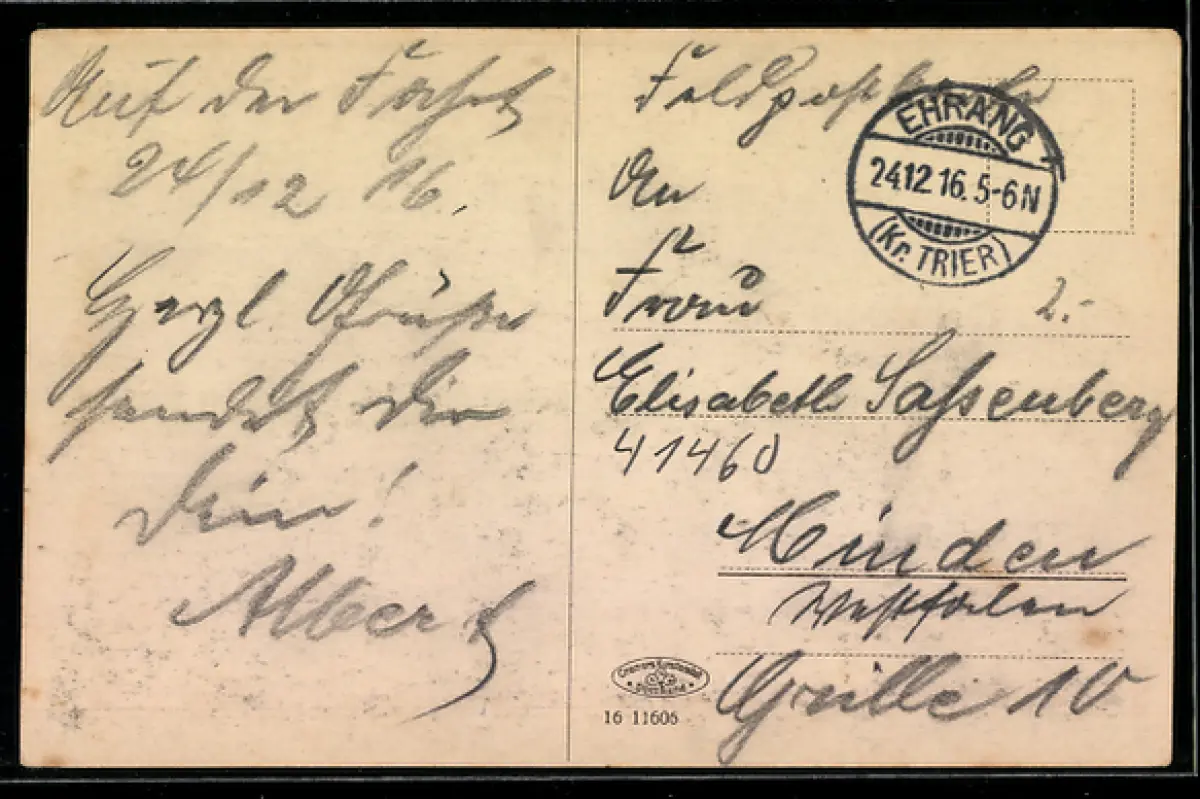 Auf der Fahrt
24/12 16.
Herzl. Grüße
sendet dir
dein!
Albert
Feldpostkarte
EHRANG
24.12.16.5-6N
(Kr. TRIER)
An
Frau
2.-
Elisabeth Saßenberg
41460
Minden
Westfalen
Grille 10
16 11606